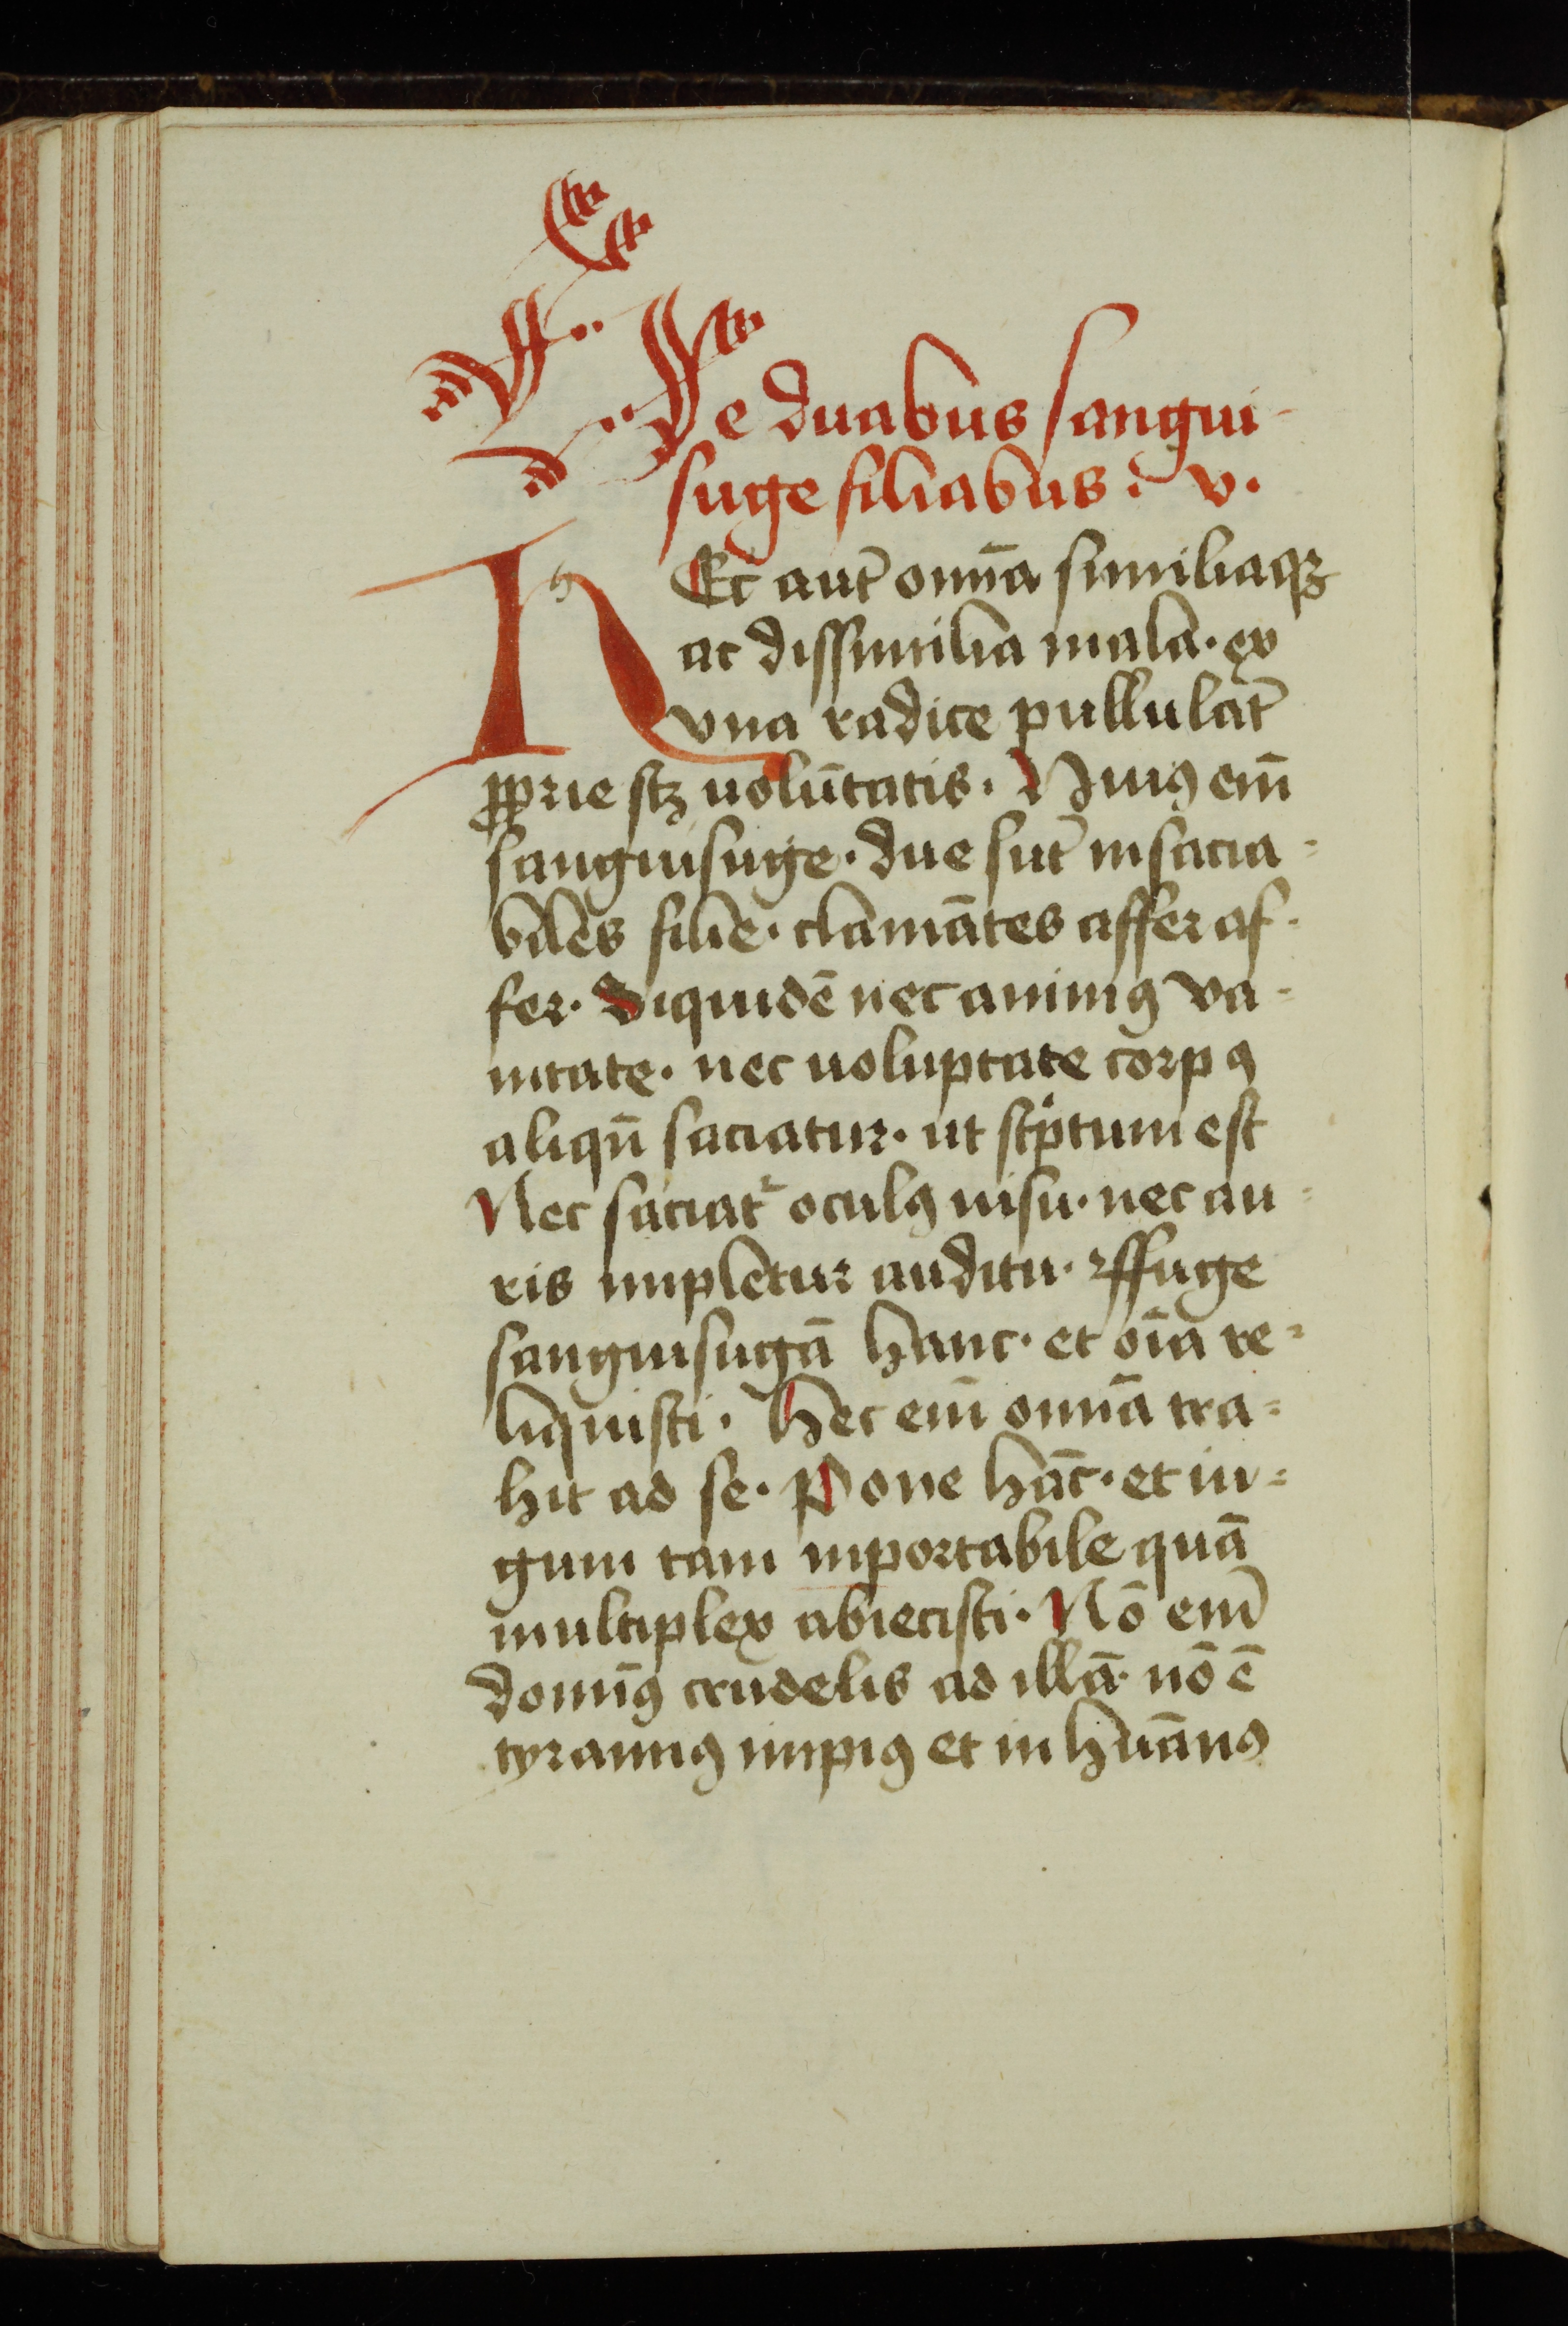 De duabus sangui-
suge filiabus. v.
HEc aut̄ omīa similiaqꝫ
ac dissimilia mala. ex
vna radice pullulāt
ꝓprie sꝫ volūtatis. Huiꝰ em̄
sanguisuge. due sūt insacia-
biles filie. clamātes affer af-
fer. Siquidē nec animꝰ va-
nitate. nec uoluptate corpꝰ
aliqn̄ saciatur. ut scͥptum est
Nec saciatᷣ oculꝰ uisu. nec au-
ris impletur auditu. Effuge
sanguisugā hanc. et oīa re-
liquisti. Hec em̄ omīa tra-
hit ad se. Pone hāc. et iu-
gum tam inportabile quā
multiplex abiecisti. Nō em̄
domīꝰ crudelis ad illā. nō ē
tyrannꝰ impiꝰ et in humānꝰ